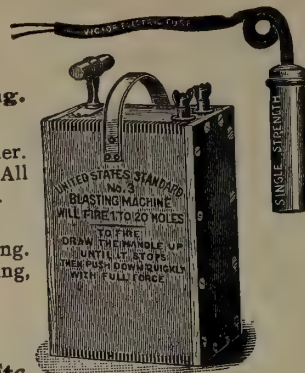 VICTOR ELECTRIC FUSE
SINGLE STRENGTH
g.
er.
All
ng.
ng,
UNITED STATES STANDARD
No. 3
BLASTING MACHINE
WILL FIRE 1 TO 20 HOLES
TO FIRE
DRAW THE HANDLE UP
UNTIL IT STOPS
THEN PUSH DOWN QUICKLY
WITH FULL FORCE